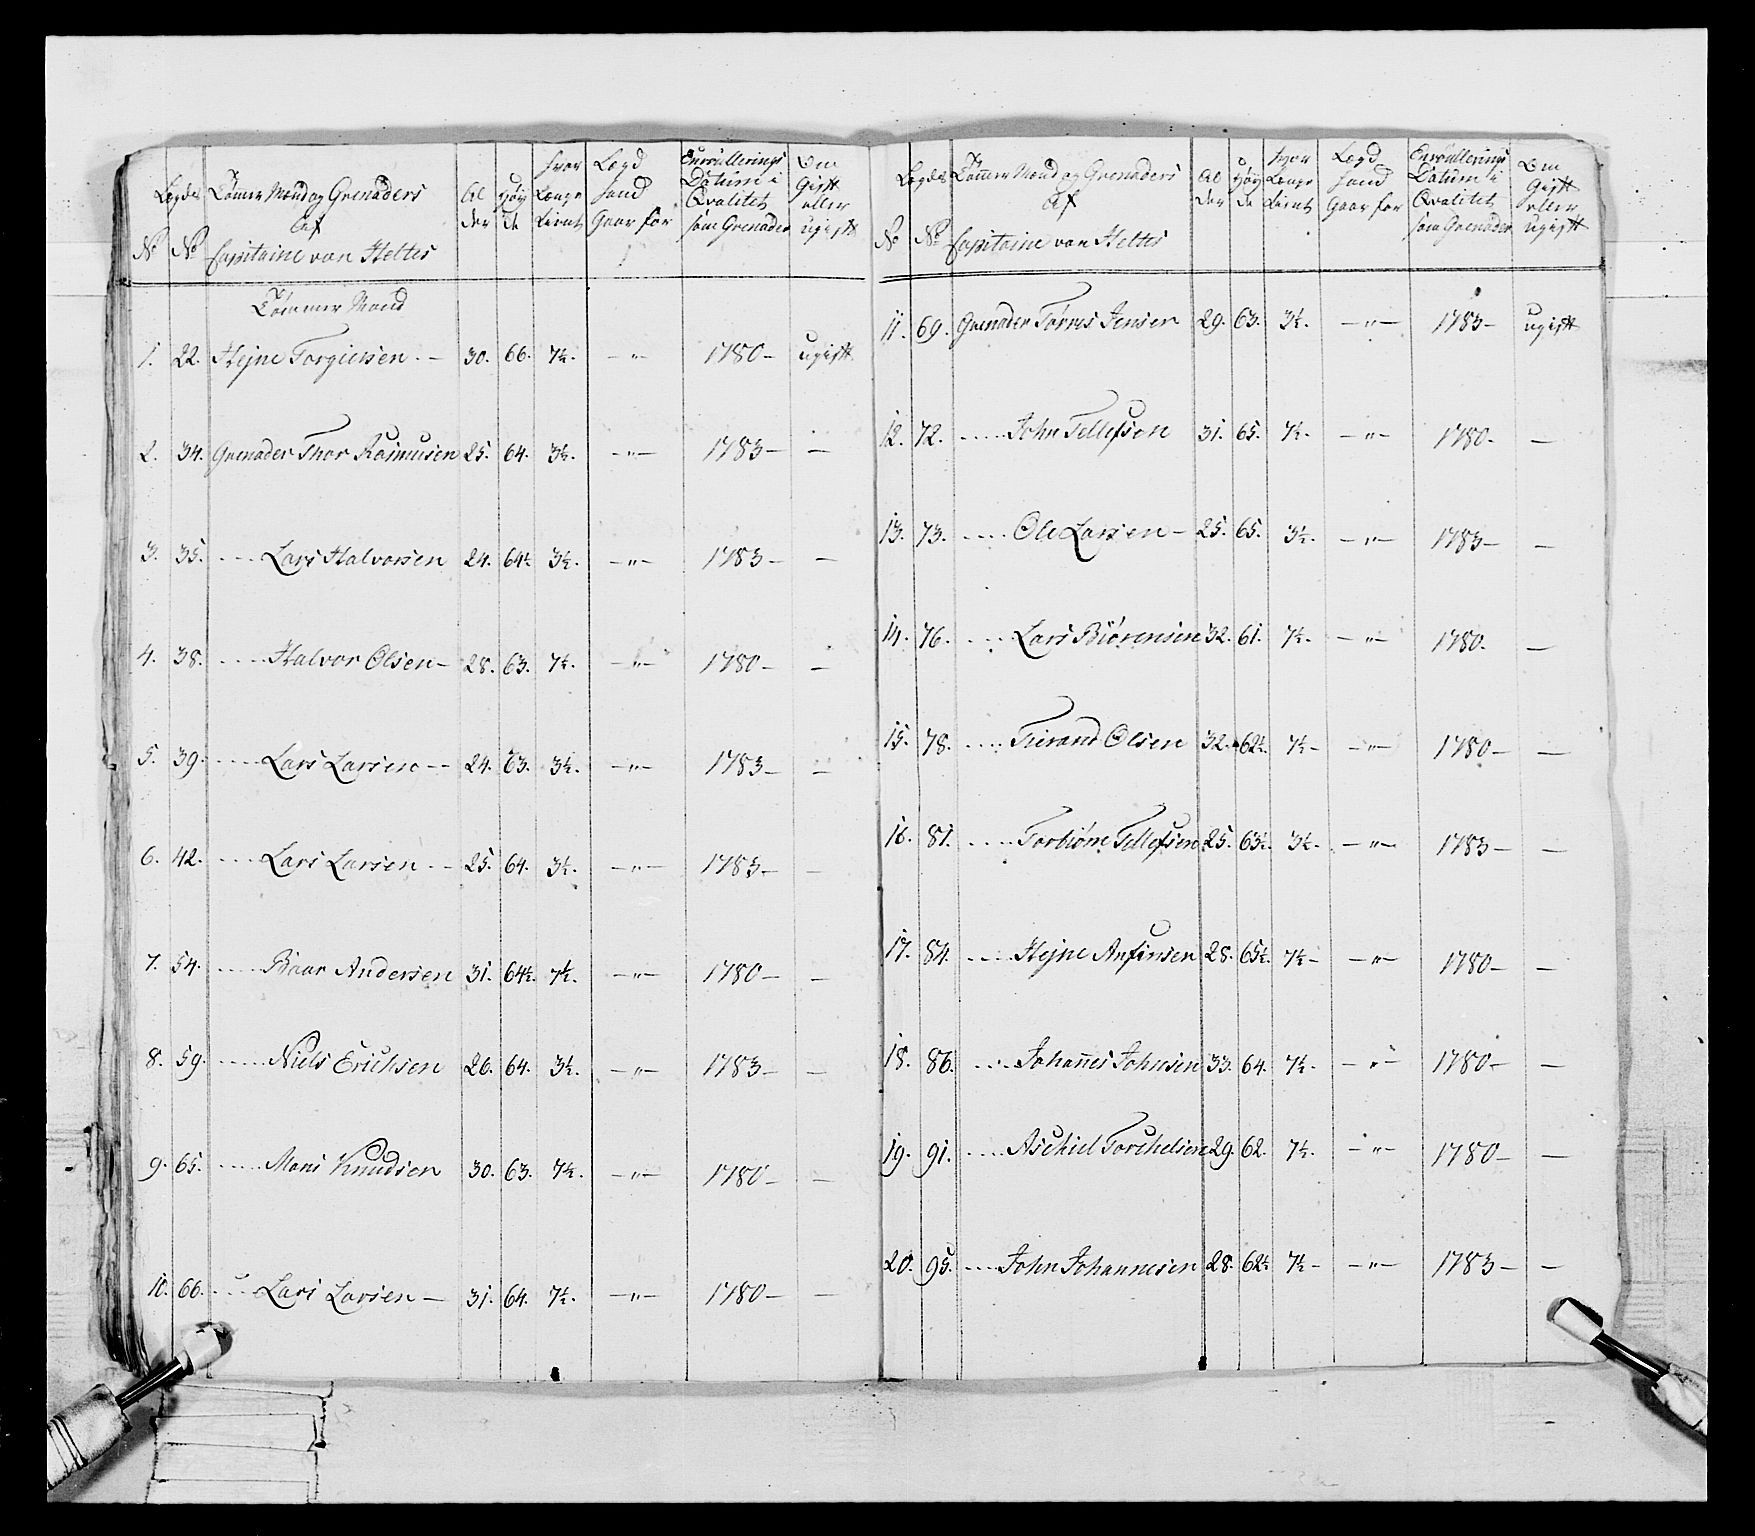 Legdes Tømer Mand og Grenaders Al Høy hvor Legd Enroullerings Om
af der de Længe hand Datum i Gift
Tient Gaar for Qvalitet eller
som Grenader ugift
No No Capitaine von Heltes
Tømmer Mand
1. 22. Hejne Torgiersen. — 30. 66. 7½. — " 1780— ugift
2. 34. Grenader Thor Rasmusen 25. 64. 3½. — " — 1783— —
3. 35. .... Lars Halvorsen 24. 64½ 3½. — " — 1783— —
4. 38. .... Halvor Olsen— 28. 63. 7½. — " — 1780— —
5. 39. .... Lars Larsen — 24. 63. 3½. — " — 1783— —
6. 42. .... Lars Larsen — 25. 64. 3½. — " — 1783— —
7. 54. .... Baar Andersen 31. 64½. 7½. — " — 1780— —
8. 59. .... Niels Erichsen 26. 64. 3½. — " — 1783— —
9. 65. .... Mons Knudsen 30. 63. 7½. — " — 1780— —
10. 66. ... Lars Larsen — 31. 64. 7½. — " — 1780— —
Legdes Tømer Mand og Grenaders Al Høy hvor Legd Enroullerings Om
af der de Længe hand Datum i Gift
Tient Gaar for Qvalitet eller
som Grenader ugift
No No Capitaine von Heltes
11. 69. Grenader Tørres Jensen 29. 63. 3½. — " — 1783— ugift
12. 72. .... John Tellefsen 31. 65. 7½. — " — 1780. —
13. 73. .... Ole Larsen — 25. 65. 3½. — " — 1783— —
14. 76. .... Lars Biørensen 32. 61. 7½. — " — 1780. —
15. 78. .... Tierand Olsen 32. 62½. 7½ — — " — 1780— —
16. 81. .... Torbiørn Tellefsen 25. 63½. 3½. — " — 1783— —
17. 84. .... Hejne Anfinsen 28. 65½. 7½ — — " — 1780— —
18. 86. ... Johannes Johnsen 33. 64. 7½. — " — 1780— —
19. 91. .... Aschiel Torchelsen 29. 62. 7½. — " — 1780— —
20. 95. .... John Johannesen 28. 62½ 7½ — — " — 1783— —